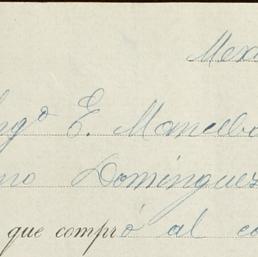 Mex
Ing⁰ E. Mancebo
no Domínguez
que compró al co